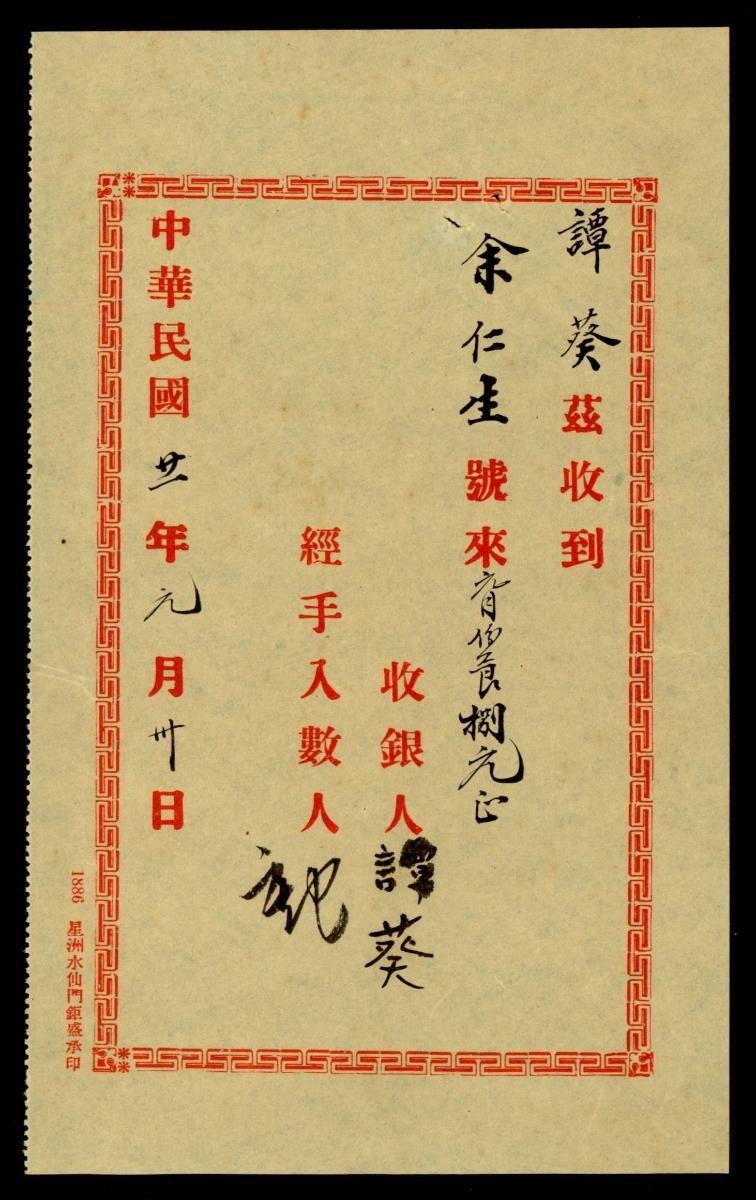 譚葵茲收到
余仁生號來 捌元正
收銀人 譚葵
經手入數人
中華民國廿一年元月卅日
1886 星洲水仙門鉅盛承印